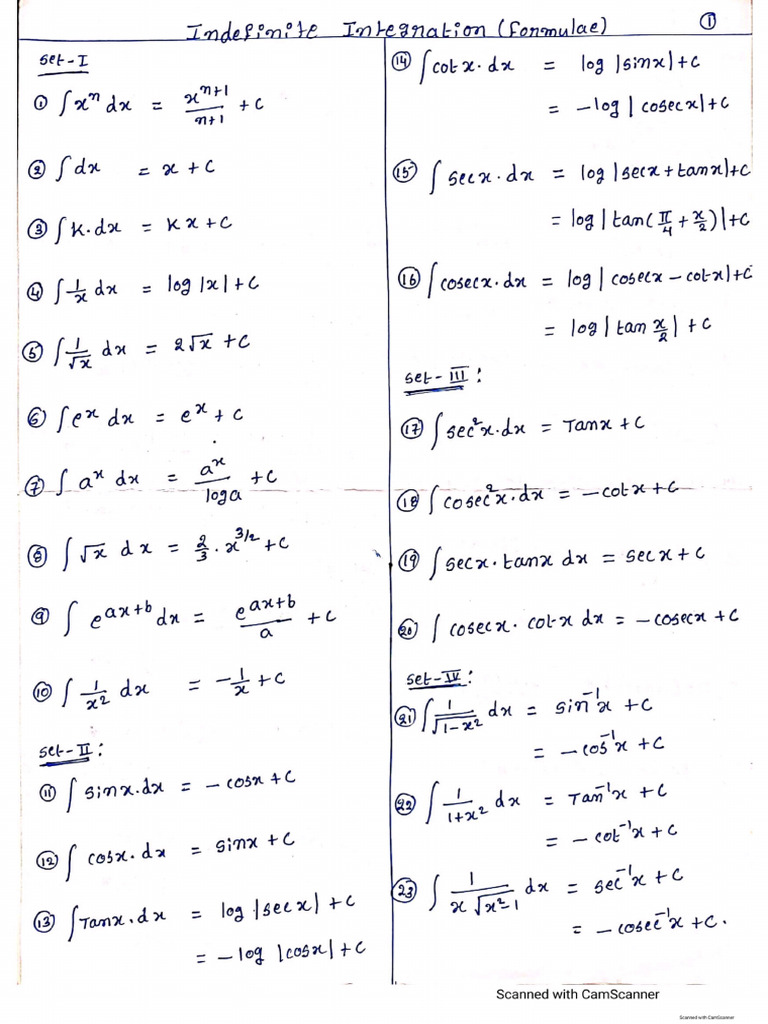 Indefinite Integration (formulae) ①
Set-I
① ∫ xⁿ dx = xⁿ⁺¹/n+1 + c
② ∫ dx = x + c
③ ∫ K.dx = Kx + c
④ ∫ 1/x dx = log |x| + c
⑤ ∫ 1/√x dx = 2√x + c
⑥ ∫ eˣ dx = eˣ + c
⑦ ∫ aˣ dx = aˣ/loga + c
⑧ ∫ √x dx = 2/3 . x^3/2 + c
⑨ ∫ e^ax+b dx = e^ax+b/a + c
⑩ ∫ 1/x² dx = -1/x + c
Set-II :
⑪ ∫ sinx.dx = - cosx + c
⑫ ∫ cosx.dx = sinx + c
⑬ ∫ Tanx.dx = log |secx| + c
= - log |cosx| + c
⑭ ∫ cotx.dx = log |sinx| + c
= - log | cosecx| + c
⑮ ∫ secx.dx = log |secx + tanx| + c
= log | tan(π/4 + x/2)| + c
⑯ ∫ cosecx.dx = log | cosecx - cotx| + c
= log | tan x/2 | + c
Set-III :
⑰ ∫ sec²x.dx = Tanx + c
⑱ ∫ cosec²x.dx = - cotx + c
⑲ ∫ secx.tanx dx = secx + c
⑳ ∫ cosecx.cotx dx = - cosecx + c
Set-IV :
㉑ ∫ 1/√1-x² dx = sin⁻¹x + c
= - cos⁻¹x + c
㉒ ∫ 1/1+x² dx = Tan⁻¹x + c
= - cot⁻¹x + c
㉓ ∫ 1/x√x²-1 dx = sec⁻¹x + c
= - cosec⁻¹x + c.
Scanned with CamScanner
Scanned with CamScanner